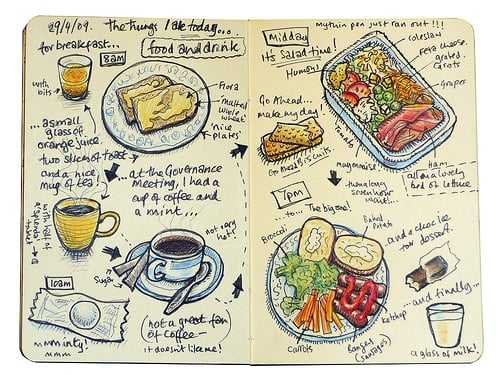 29/4/09. The things I ate today...
for breakfast...
8am
food and drink
with
bits
Flora
'malted
whole
wheat'
'nice
plates'
...a small
glass of
orange juice
two slices of toast
and a nice
mug of tea!
...at the Governance
meeting, I had a
cup of coffee and
a mint...
with half of
a Splenda
tablet
not very
hot!
Sugar
10am
mmminty!
mmm
(not a great fan
of coffee -
it doesn't like me!
midday
it's Salad time!
Humous
mythin pen just ran out !!!
coleslaw
Feta cheese
grated
carrots
Grapes
Go Ahead...
make my day
Go Ahead Biscuits.
Tomato
mayonnaise
Ham
all on a lovely
bed of lettuce
7pm
then a long
seven hour
wait...
...to... The big one!
Broccoli
Baked
Potato
and a choc ice
for dessert.
ketchup
Carrots
Bangers
(sausages)
...and finally...
a glass of milk!